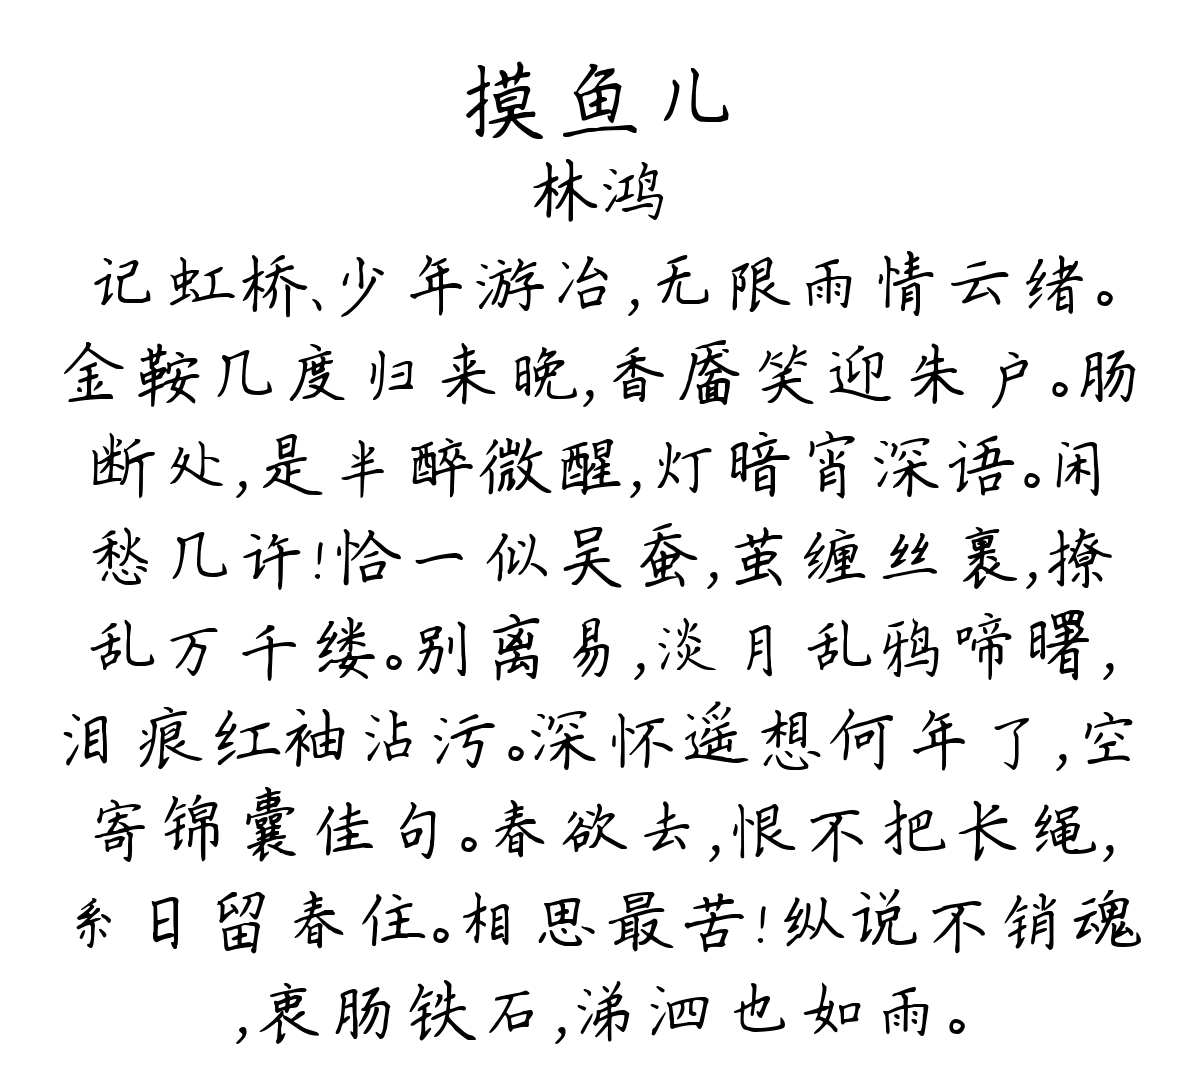 摸鱼儿
林鸿
记虹桥、少年游冶,无限雨情云绪。
金鞍几度归来晚,香靥笑迎朱户。肠
断处,是半醉微醒,灯暗宵深语。闲
愁几许!恰一似吴蚕,茧缠丝裹,撩
乱万千缕。别离易,淡月乱鸦啼曙,
泪痕红袖沾污。深怀遥想何年了,空
寄锦囊佳句。春欲去,恨不把长绳,
系日留春住。相思最苦!纵说不销魂
,衷肠铁石,涕泗也如雨。